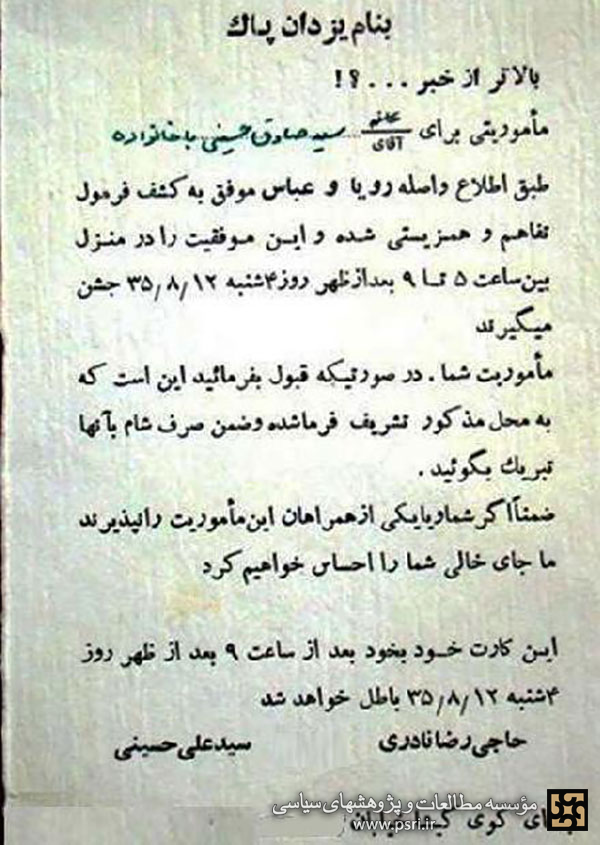 بنام یزدان پاك
بالاتر از خبر ...؟!
مأموریتی برای خانم آقای سید صادق حسینی با خانواده
طبق اطلاع واصله رویا و عباس موفق به کشف فرمول
تفاهم و همزیستی شده و این موفقیت را در منزل
بین ساعت ۵ تا ۹ بعدازظهر روز ۴شنبه ۳۵/۸/۱۲ جشن
میگیرند
مأموریت شما . در صورتیکه قبول بفرمائید این است که
به محل مذکور تشریف فرماشده وضمن صرف شام بآنها
تبریك بگوئید .
ضمناً اگر شما ویا یکی از همراهان این مأموریت را نپذیرند
ما جای خالی شما را احساس خواهیم کرد
این کارت خود بخود بعد از ساعت ۹ بعد از ظهر روز
۴شنبه ۳۵/۸/۱۲ باطل خواهد شد
حاجی رضا نادری سید علی حسینی
مؤسسه مطالعات و پژوهشهای سیاسی
www.psri.ir
کوی خیابان